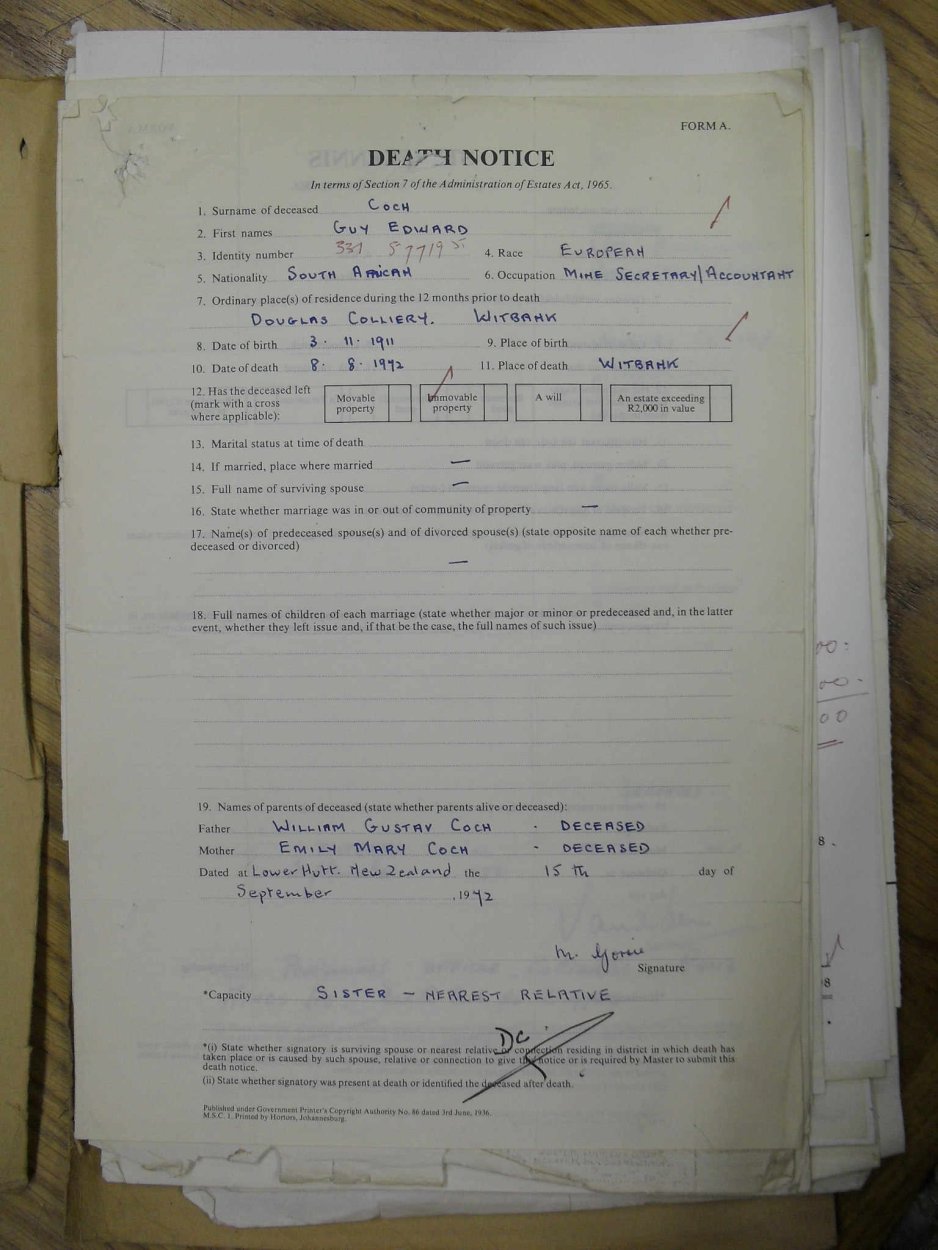 FORM A.
DEATH NOTICE
In terms of Section 7 of the Administration of Estates Act, 1965.
1. Surname of deceased COCH
2. First names GUY EDWARD
3. Identity number 331 4. Race EUROPEAN
5. Nationality SOUTH AFRICAN 6. Occupation MINE SECRETARY/ACCOUNTANT
7. Ordinary place(s) of residence during the 12 months prior to death
DOUGLAS COLLIERY. WITBANK
8. Date of birth 3. 11. 1911 9. Place of birth
10. Date of death 8. 8. 1972 11. Place of death WITBANK
12. Has the deceased left
(mark with a cross
where applicable):
Movable
property
Immovable
property
A will
An estate exceeding
R2,000 in value
13. Marital status at time of death
14. If married, place where married —
15. Full name of surviving spouse —
16. State whether marriage was in or out of community of property —
17. Name(s) of predeceased spouse(s) and of divorced spouse(s) (state opposite name of each whether pre-
deceased or divorced)
—
18. Full names of children of each marriage (state whether major or minor or predeceased and, in the latter
event, whether they left issue and, if that be the case, the full names of such issue)
19. Names of parents of deceased (state whether parents alive or deceased):
Father WILLIAM GUSTAV COCH - DECEASED
Mother EMILY MARY COCH - DECEASED
Dated at Lower Hutt. New Zealand the 15th day of
September, 1972
M.
Signature
*Capacity SISTER — NEAREST RELATIVE
DC
*(i) State whether signatory is surviving spouse or nearest relative or connection residing in district in which death has
taken place or is caused by such spouse, relative or connection to give this notice or is required by Master to submit this
death notice.
(ii) State whether signatory was present at death or identified the deceased after death.
Published under Government Printer's Copyright Authority No. 86 dated 3rd June, 1936.
M.S.C. 1. Printed by Hortors, Johannesburg.